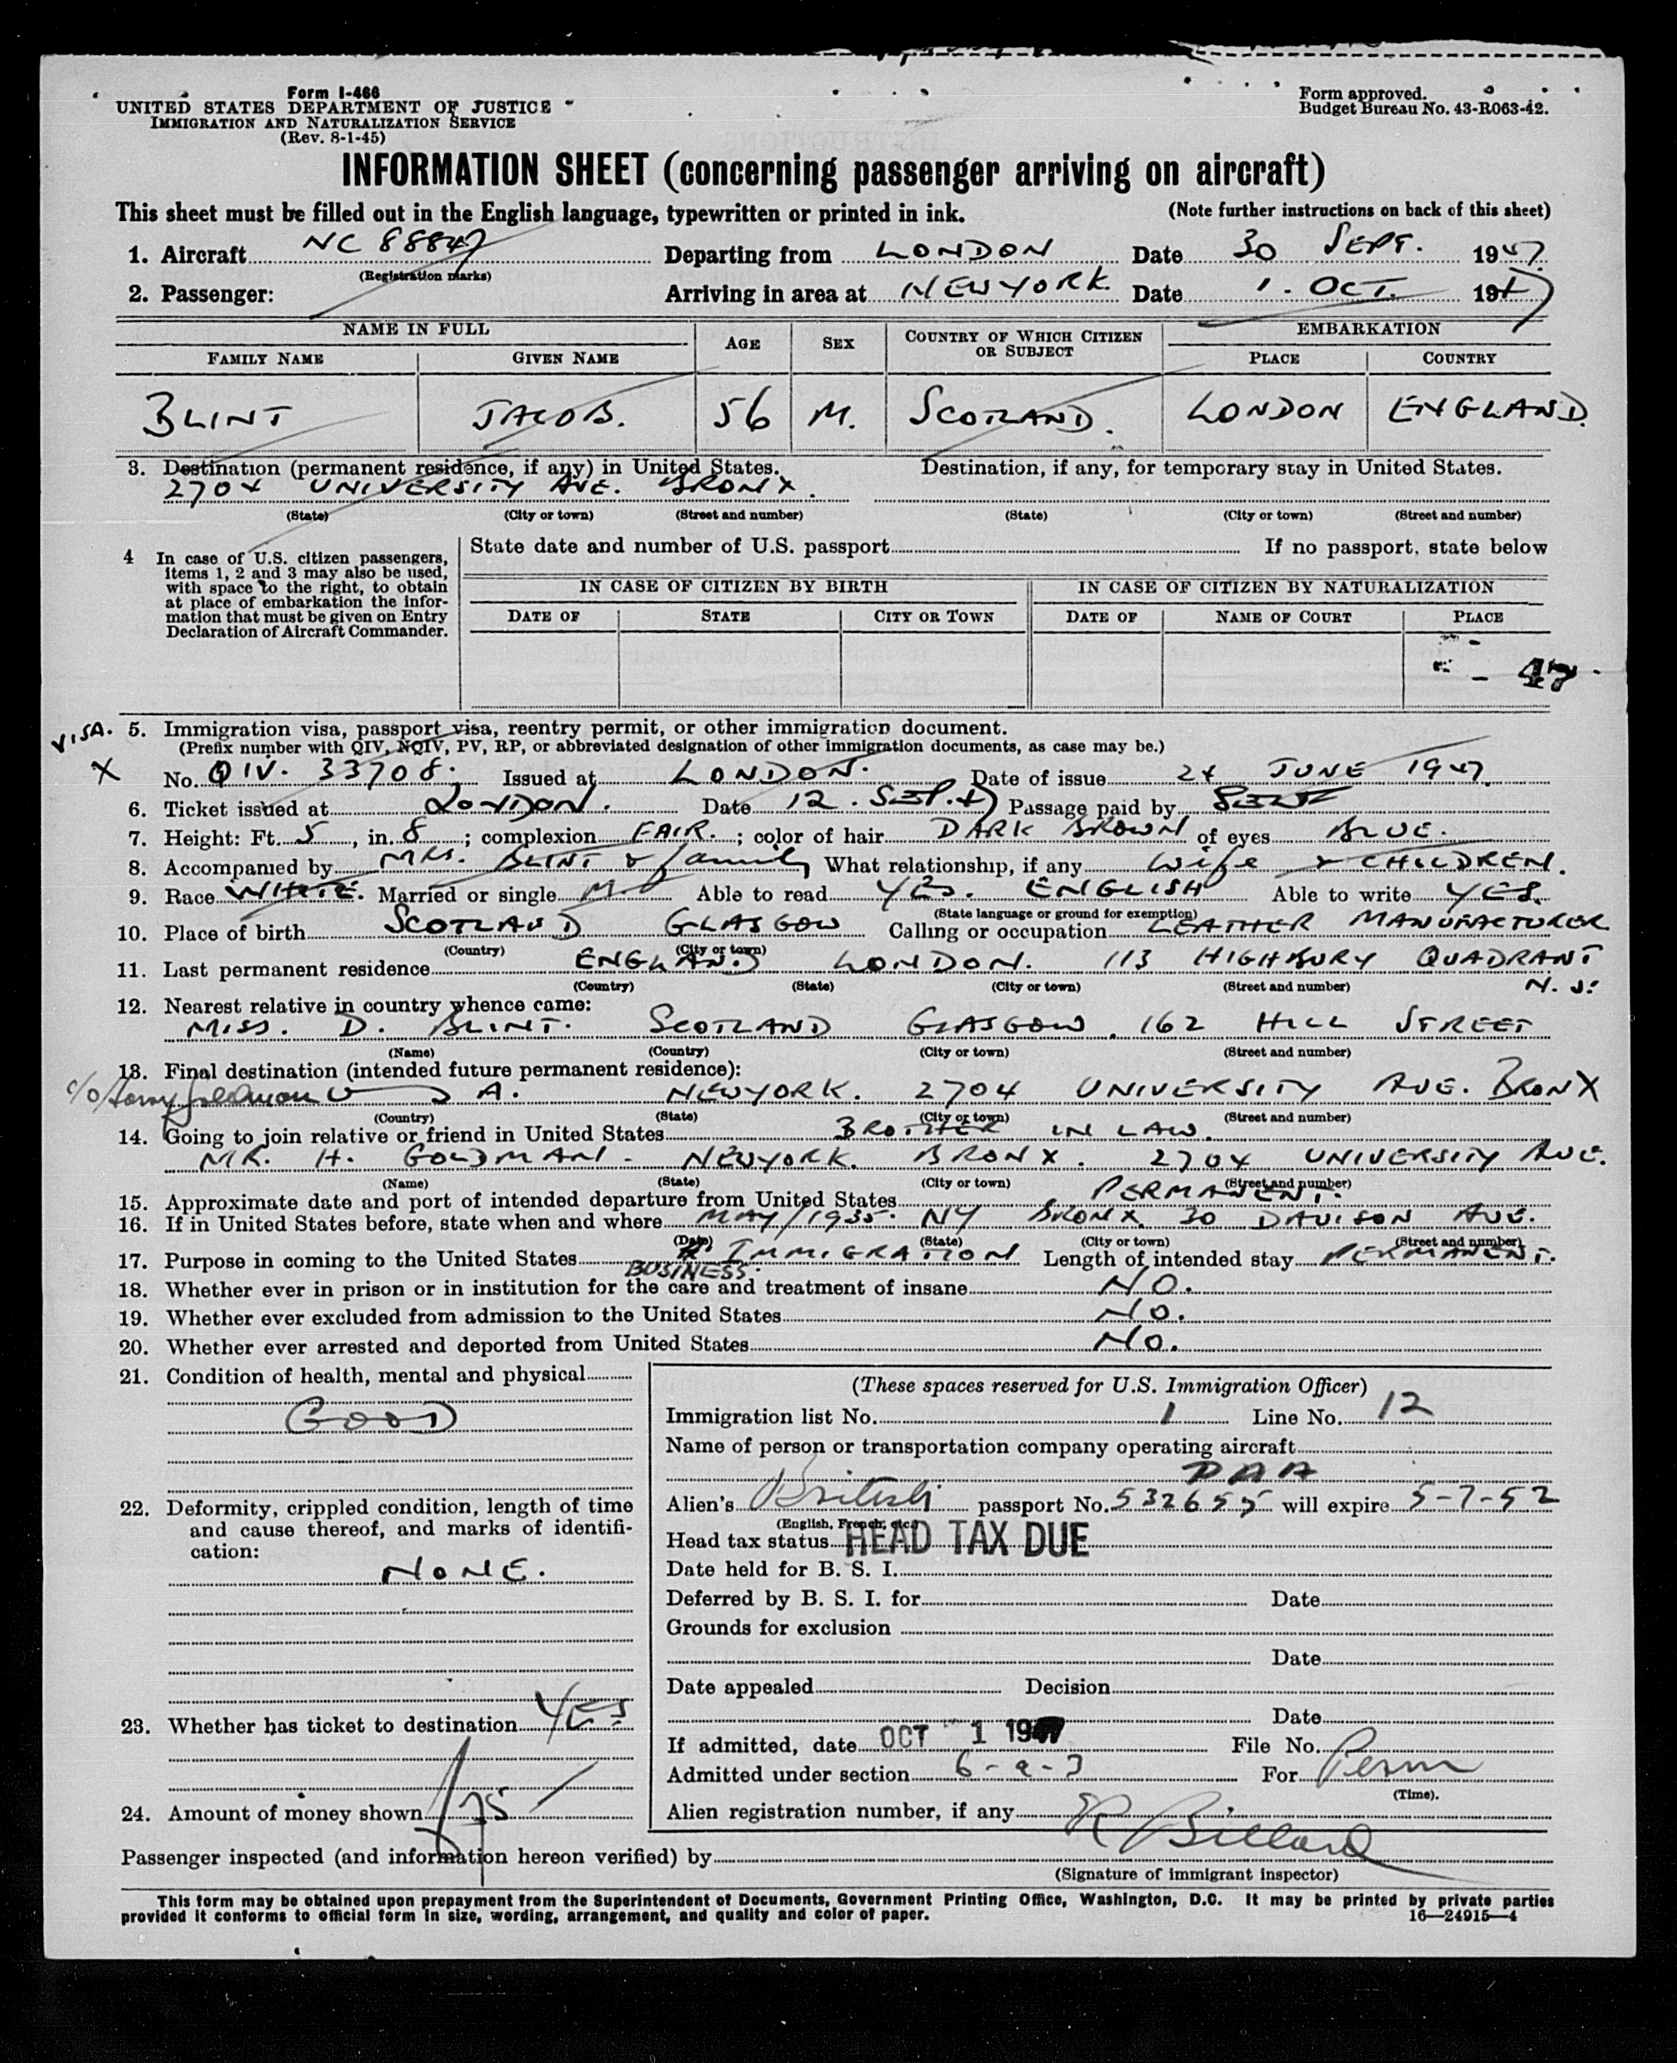 Form I-466
UNITED STATES DEPARTMENT OF JUSTICE
IMMIGRATION AND NATURALIZATION SERVICE
(Rev. 8-1-45)
Form approved.
Budget Bureau No. 43-R063-42.
INFORMATION SHEET (concerning passenger arriving on aircraft)
This sheet must be filled out in the English language, typewritten or printed in ink. (Note further instructions on back of this sheet)
1. Aircraft NC 88847 Departing from LONDON Date 30 SEPT. 1947
(Registration marks)
2. Passenger: Arriving in area at NEWYORK Date 1. OCT. 1947
NAME IN FULL AGE SEX COUNTRY OF WHICH CITIZEN OR SUBJECT EMBARKATION
FAMILY NAME GIVEN NAME PLACE COUNTRY
BLINT JACOB. 56 M. SCOTLAND. LONDON ENGLAND.
3. Destination (permanent residence, if any) in United States. Destination, if any, for temporary stay in United States.
2704 UNIVERSITY AVE. BRONX.
(State) (City or town) (Street and number) (State) (City or town) (Street and number)
4 In case of U.S. citizen passengers, items 1, 2 and 3 may also be used, with space to the right, to obtain at place of embarkation the information that must be given on Entry Declaration of Aircraft Commander.
State date and number of U.S. passport If no passport, state below
IN CASE OF CITIZEN BY BIRTH IN CASE OF CITIZEN BY NATURALIZATION
DATE OF STATE CITY OR TOWN DATE OF NAME OF COURT PLACE
47
VISA. 5. Immigration visa, passport visa, reentry permit, or other immigration document.
(Prefix number with QIV, NQIV, PV, RP, or abbreviated designation of other immigration documents, as case may be.)
X No. QIV. 33708. Issued at LONDON. Date of issue 24 JUNE 1947
6. Ticket issued at LONDON. Date 12. SEP. 47 Passage paid by SELF
7. Height: Ft. 5, in. 8; complexion FAIR.; color of hair DARK BROWN of eyes BLUE.
8. Accompanied by MRS. BLINT & family What relationship, if any Wife & CHILDREN.
9. Race WHITE. Married or single M. Able to read YES. ENGLISH Able to write YES.
(State language or ground for exemption)
10. Place of birth SCOTLAND GLASGOW Calling or occupation LEATHER MANUFACTURER
(Country) (City or town)
11. Last permanent residence ENGLAND LONDON. 113 HIGHBURY QUADRANT
(Country) (State) (City or town) (Street and number) N. 5.
12. Nearest relative in country whence came:
MISS. D. BLINT. SCOTLAND GLASGOW. 162 HILL STREET
(Name) (Country) (City or town) (Street and number)
13. Final destination (intended future permanent residence):
c/o Harry Goldman U S A. NEWYORK. 2704 UNIVERSITY AVE. BRONX
(Country) (State) (City or town) (Street and number)
14. Going to join relative or friend in United States BROTHER IN LAW.
MR. H. GOLDMAN. NEWYORK. BRONX. 2704 UNIVERSITY AVE.
(Name) (State) (City or town) (Street and number)
15. Approximate date and port of intended departure from United States PERMANENT.
16. If in United States before, state when and where MAY/1935. NY BRONX 30 DAVISON AVE.
(Date) (State) (City or town) (Street and number)
17. Purpose in coming to the United States IMMIGRATION Length of intended stay PERMANENT.
BUSINESS.
18. Whether ever in prison or in institution for the care and treatment of insane NO.
19. Whether ever excluded from admission to the United States NO.
20. Whether ever arrested and deported from United States NO.
21. Condition of health, mental and physical
GOOD
22. Deformity, crippled condition, length of time
and cause thereof, and marks of identifi-
cation:
NONE.
23. Whether has ticket to destination YES
24. Amount of money shown 75
(These spaces reserved for U.S. Immigration Officer)
Immigration list No. 1 Line No. 12
Name of person or transportation company operating aircraft
PAA
Alien's British passport No. 532655 will expire 5-7-52
(English, French, etc.)
Head tax status HEAD TAX DUE
Date held for B. S. I.
Deferred by B. S. I. for Date
Grounds for exclusion
Date
Date appealed Decision
Date
If admitted, date OCT 1 1947 File No.
Admitted under section 6-a-3 For Perm
(Time).
Alien registration number, if any
Passenger inspected (and information hereon verified) by R Billard
(Signature of immigrant inspector)
This form may be obtained upon prepayment from the Superintendent of Documents, Government Printing Office, Washington, D.C. It may be printed by private parties
provided it conforms to official form in size, wording, arrangement, and quality and color of paper. 16—24915—4